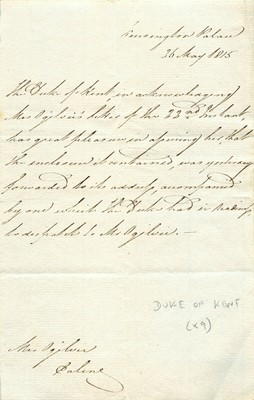 Kensington Palace
26 May 1815
The Duke of Kent, in acknowledging
Mrs Ogilvie's letter of the 22nd Instant,
has great pleasure in assuring her, that
the enclosure it contained, was yesterday
forwarded to its address, accompanied
by one which the Duke had in readiness
to despatch to Mr Ogilvie. —
DUKE OF KENT
(x9)
Mrs Ogilvie